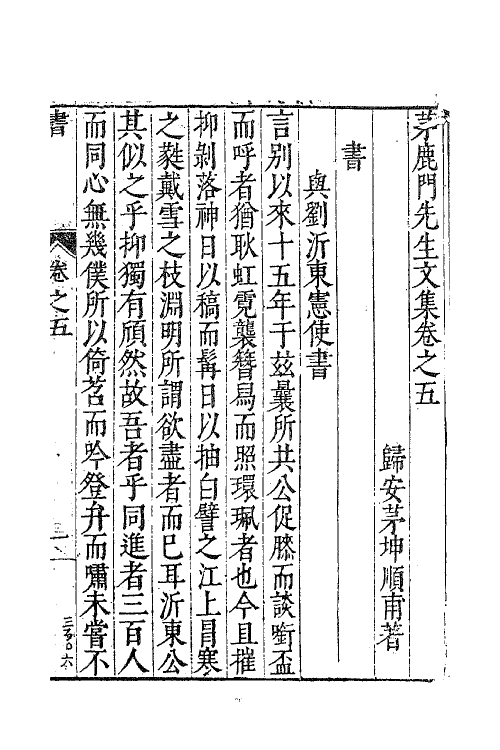 茅鹿門先生文集卷之五
歸安茅坤順甫著
書
與劉沂東憲使書
言别以來十五年于兹曩所共公促膝而談銜盃
而呼者猶耿虹霓襲簪舄而照環珮者也今且摧
抑剝落神日以稿而髯日以抽白譬之江上冒寒
之蕤戴雪之枝淵明所謂欲盡者而巳耳沂東公
其似之乎抑獨有頎然故吾者乎同進者三百人
而同心無幾僕所以倚苕而吟登弁而嘯未嘗不
書
卷之五
三百六